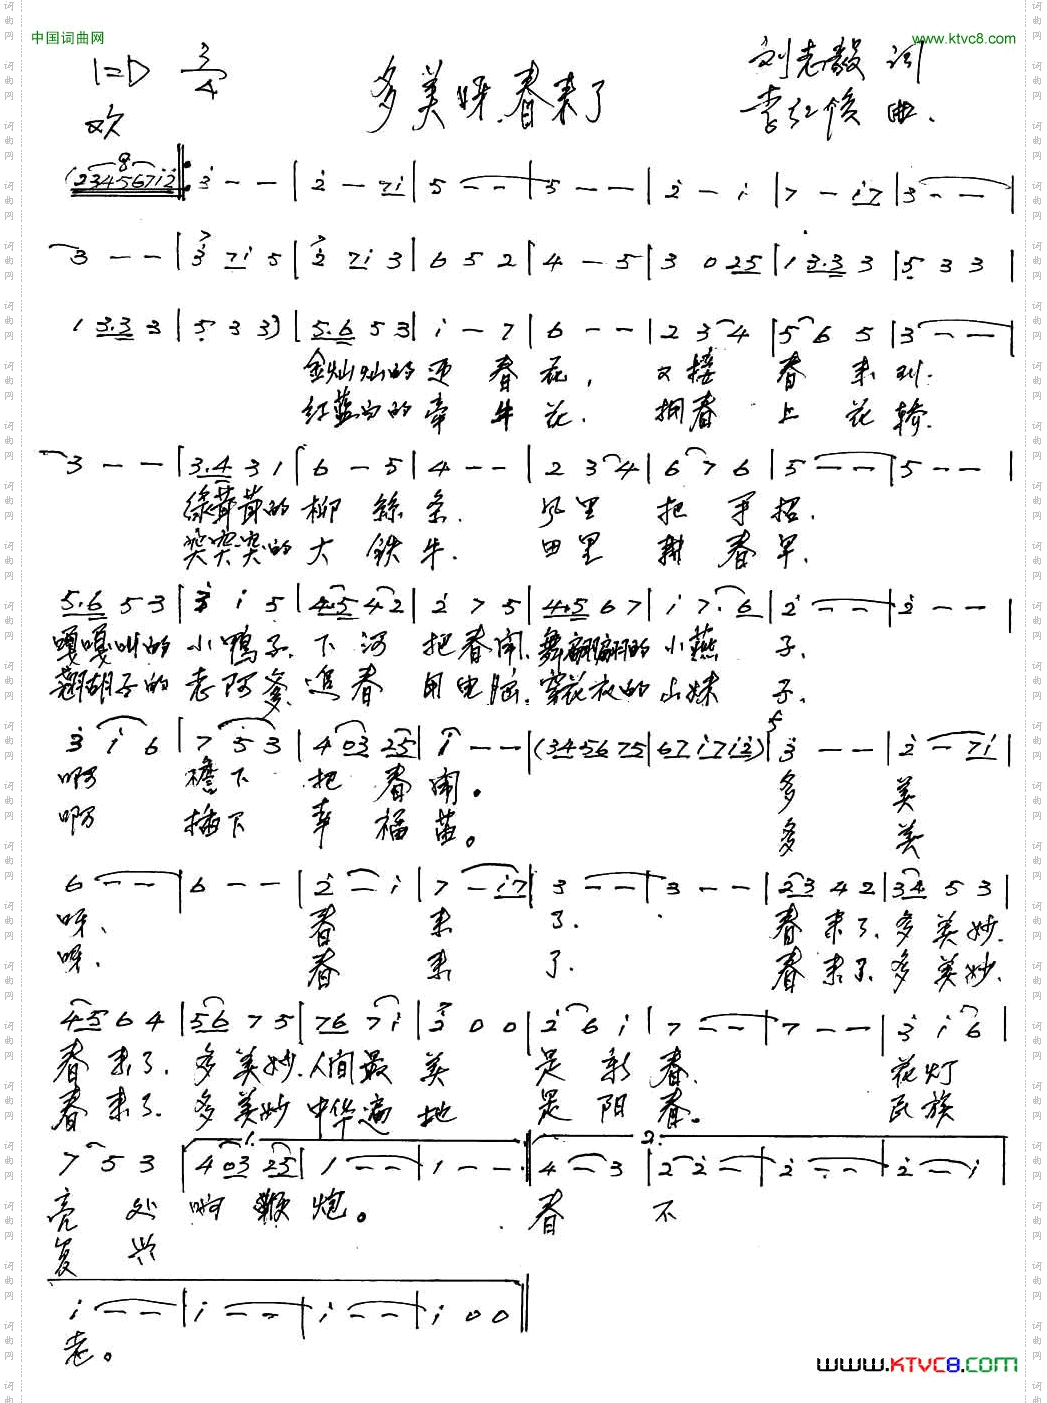 中国词曲网
www.ktvc8.com
1=D 3/4
多美呀,春来了
刘志毅 词
李红俊 曲.
欢
(2345671̇2̇ ‖: 3̇ - - | 2̇ - 7i | 5 - - | 5 - - | 2̇ - i | 7 - i7 | 3 - - |
3 - - | 3̇ 7i 5 | 2̇ 7i 3 | 6 5 2 | 4 - 5 | 3 0 25 | 1 3.3 3 | 5 3 3 |
1 3.3 3 | 5 3 3) | 5.6 5 3 | i - 7 | 6 - - | 2 3 4 | 5 6 5 | 3 - - |
金灿灿的迎春花, 又接春来到.
红蓝白的牵牛花. 拥春上花轿.
3 - - | 3.4 3 1 | 6 - 5 | 4 - - | 2 3 4 | 6 7 6 | 5 - - | 5 - - |
绿茸茸的柳丝条. 风里把手招.
突突突的大铁牛. 田里耕春早.
5.6 5 3 | 3̇ i 5 | 4.5 4 2 | 2̇ 7 5 | 4.5 6 7 | i 7. 6 | 2̇ - - | 2̇ - - |
嘎嘎叫的小鸭子.下河把春闹.舞翩翩的小燕子.
翘胡子的老阿爹.追春用电脑.穿花衣的山妹子.
3̇ i 6 | 7 5 3 | 4 03 25 | i - - | (345675 | 67i7i2̇) | 3̇ - - | 2̇ - 7i |
啊 檐下把春闹。 多美
啊 插下幸福苗。 多美
6 - - | 6 - - | 2̇ - i | 7 - i7 | 3 - - | 3 - - | 23 4 2 | 34 5 3 |
呀、春来了. 春来了.多美妙.
呀、春来了. 春来了.多美妙.
45 6 4 | 56 7 5 | 76 7 i | 2̇ 0 0 | 2̇ 6 i | 7 - - | 7 - - | 3̇ i 6 |
春来了.多美妙.人间最美是新春. 花灯
春来了.多美妙 中华遍地是阳春。 民族
7 5 3 | 1. 4 03 25 | 1 - - | 1 - - :‖ 2. 4 - 3 | 2 2̇ - | 2̇ - - | 2̇ - i |
亮处啊鞭炮。 春不
复兴
i - - | i - - | i - - | i 0 0 ‖
老。
www.KTVC8.com